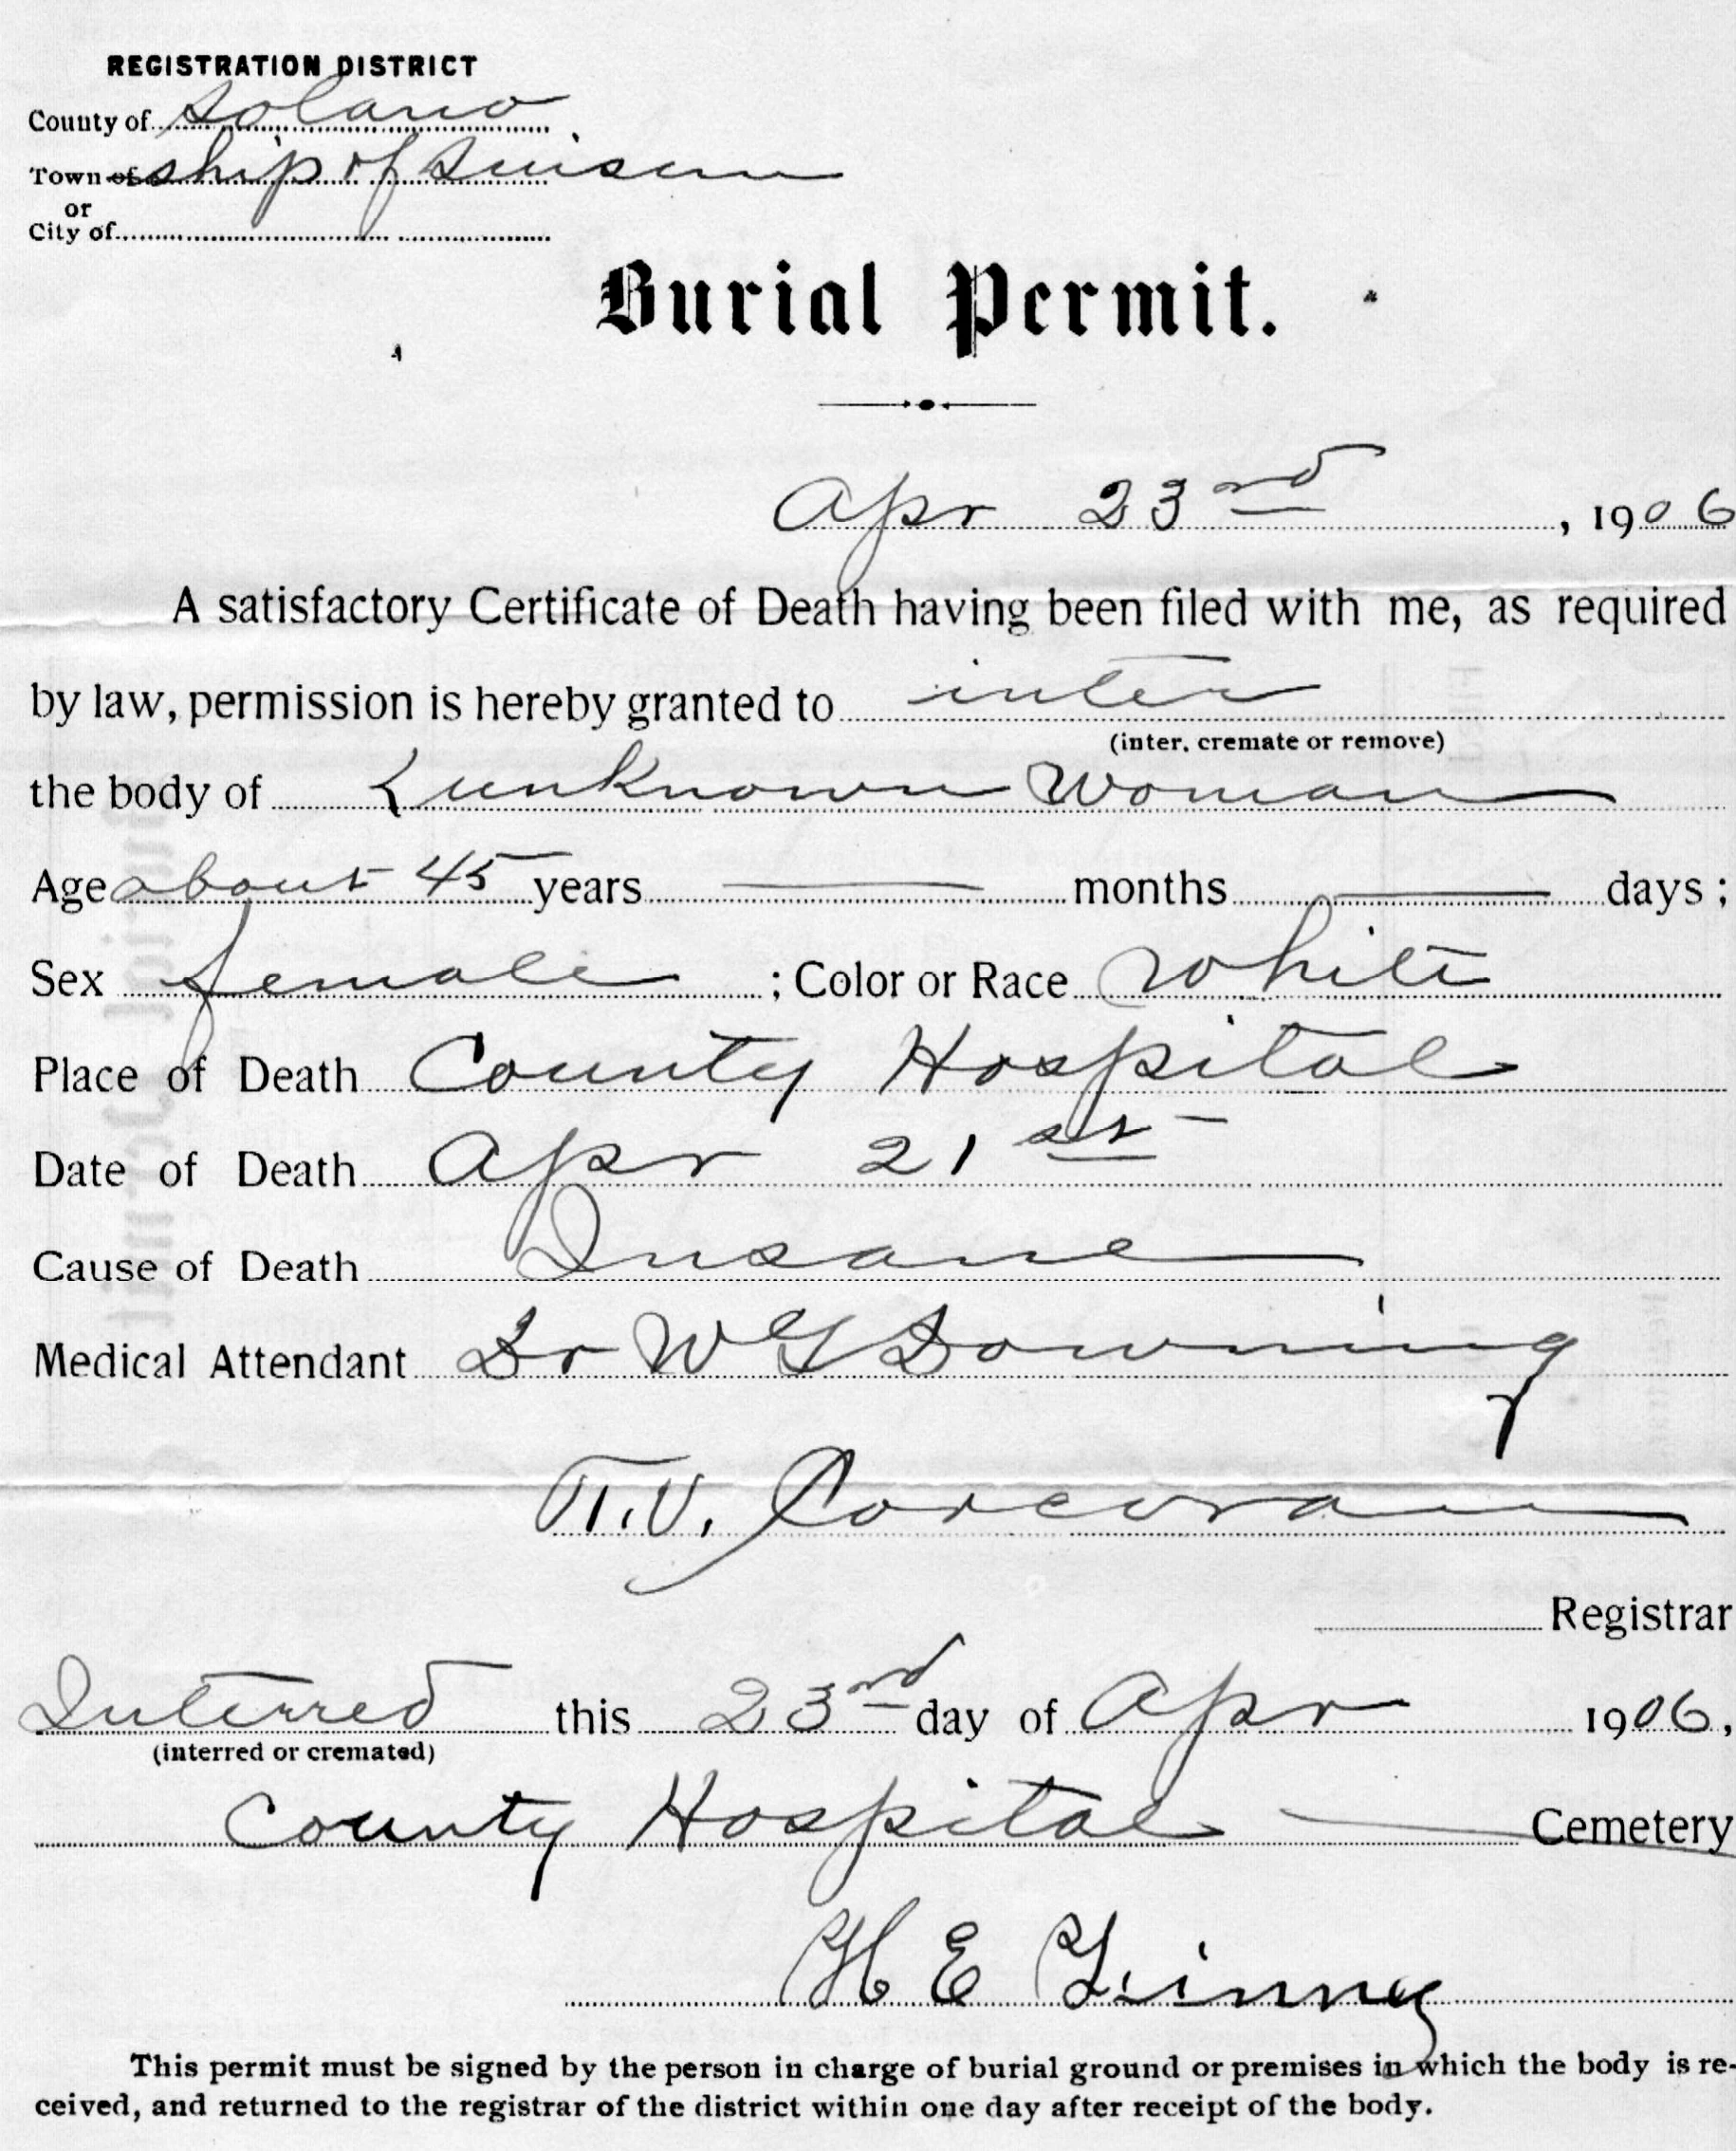 REGISTRATION DISTRICT
County of Solano
Town of ship of Suisun
or
City of
Burial Permit.
Apr 23rd, 1906
A satisfactory Certificate of Death having been filed with me, as required
by law, permission is hereby granted to inter
(inter, cremate or remove)
the body of unknown Woman
Age about 45 years months days;
Sex female ; Color or Race White
Place of Death County Hospital
Date of Death Apr 21st
Cause of Death Insane
Medical Attendant Dr W G Downing
Corcoran
Registrar
Interred this 23rd day of Apr 1906,
(interred or cremated)
County Hospital Cemetery
H E
This permit must be signed by the person in charge of burial ground or premises in which the body is re-
ceived, and returned to the registrar of the district within one day after receipt of the body.